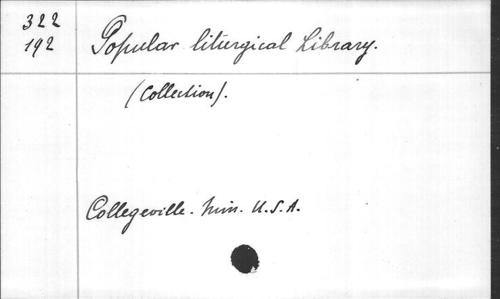 322
192
Popular liturgical Library.
(Collection).
Collegeville. Min. U.S.A.